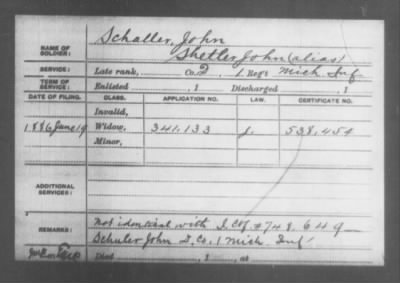 NAME OF SOLDIER: Schaller, John
Shetler John (alias)
SERVICE: Late rank, Co. D, 1 Reg't Mich Inf
TERM OF SERVICE: Enlisted , 1 Discharged , 1
DATE OF FILING. CLASS. APPLICATION NO. LAW. CERTIFICATE NO.
Invalid,
1886 June 19 Widow, 341.133 538.454
Minor,
ADDITIONAL SERVICES:
REMARKS: Not identical with I. Ctf #748.649
Schuler John D. Co. 1 Mich. Inf
Died , 1 , at